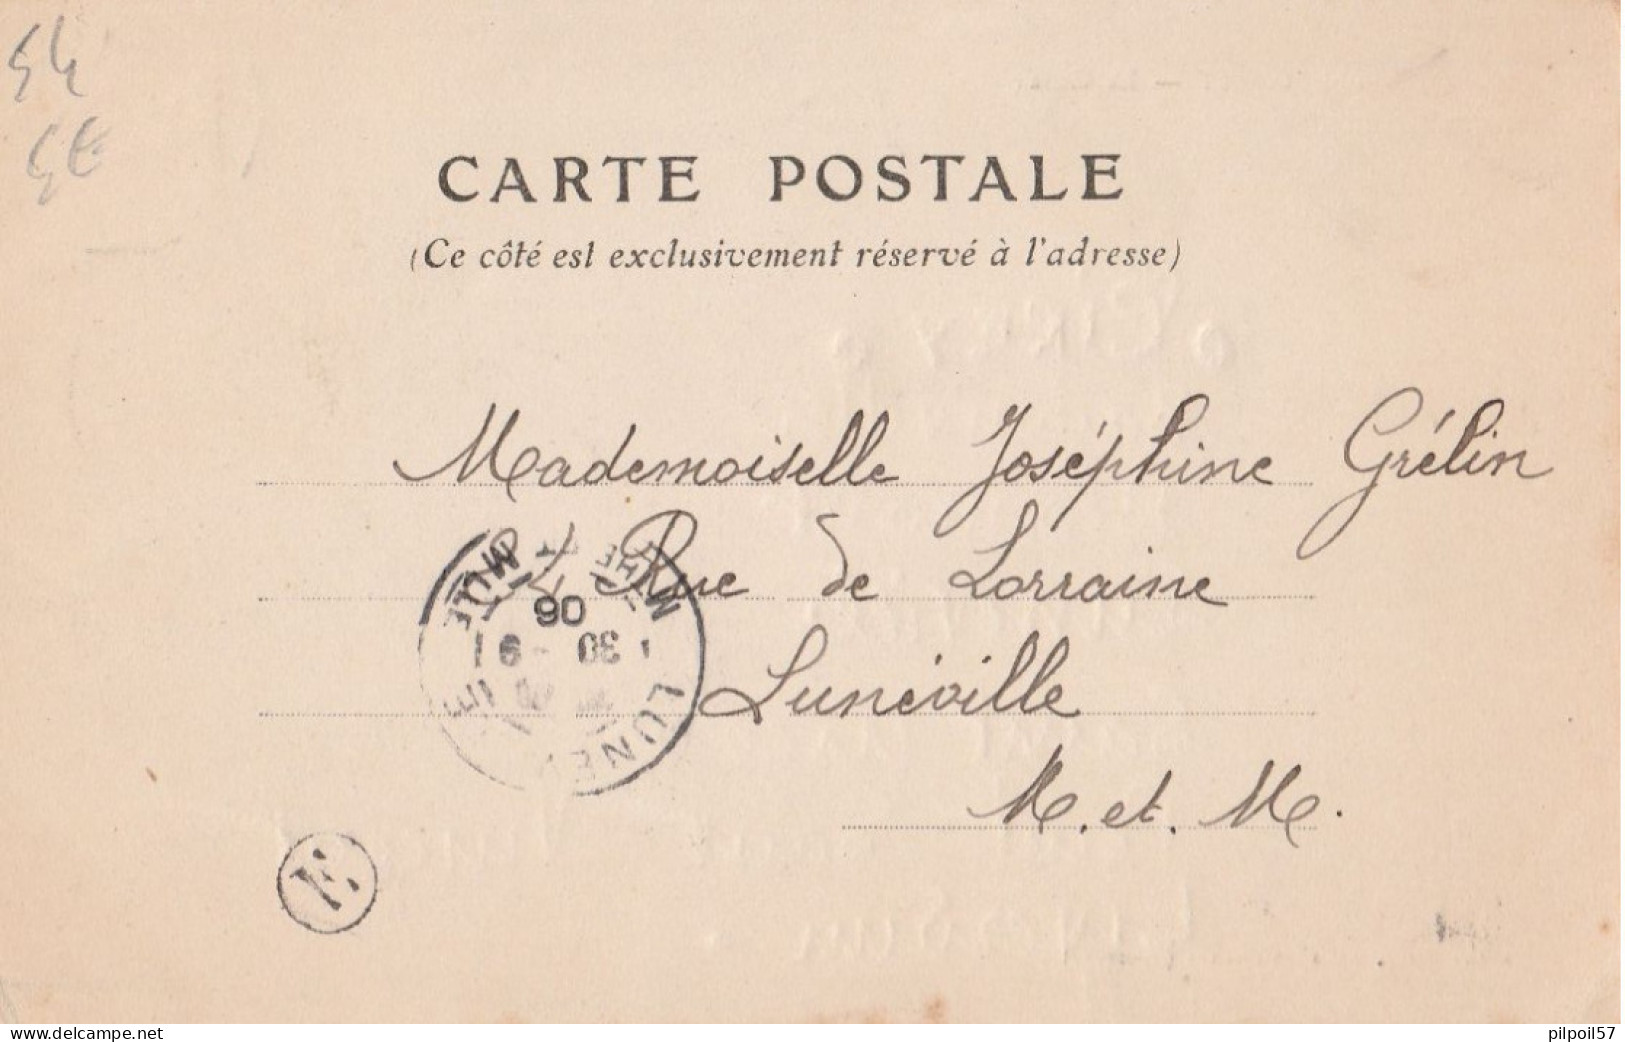 54
CARTE POSTALE
(Ce côté est exclusivement réservé à l'adresse)
Mademoiselle Joséphine Grélin
Rue de Lorraine
Lunéville
M. et. M.
06
30 -9
LUNE
E
www.delcampe.net
pilpoil57